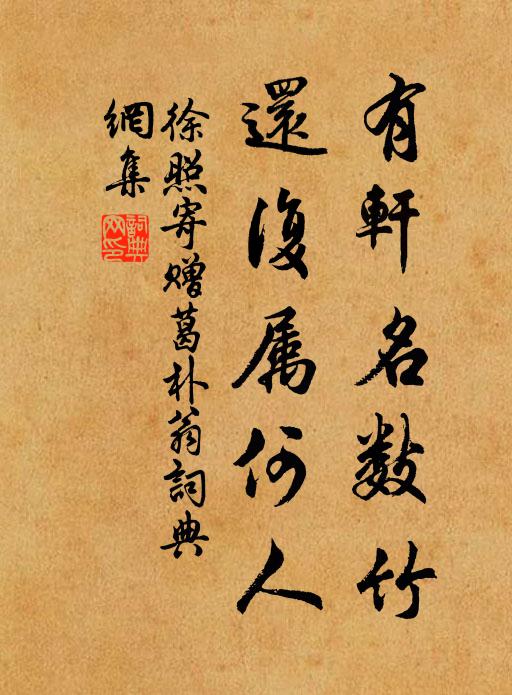 有軒名數竹
還復属何人
徐照寄贈葛朴翁詞典
網集
詞典網印